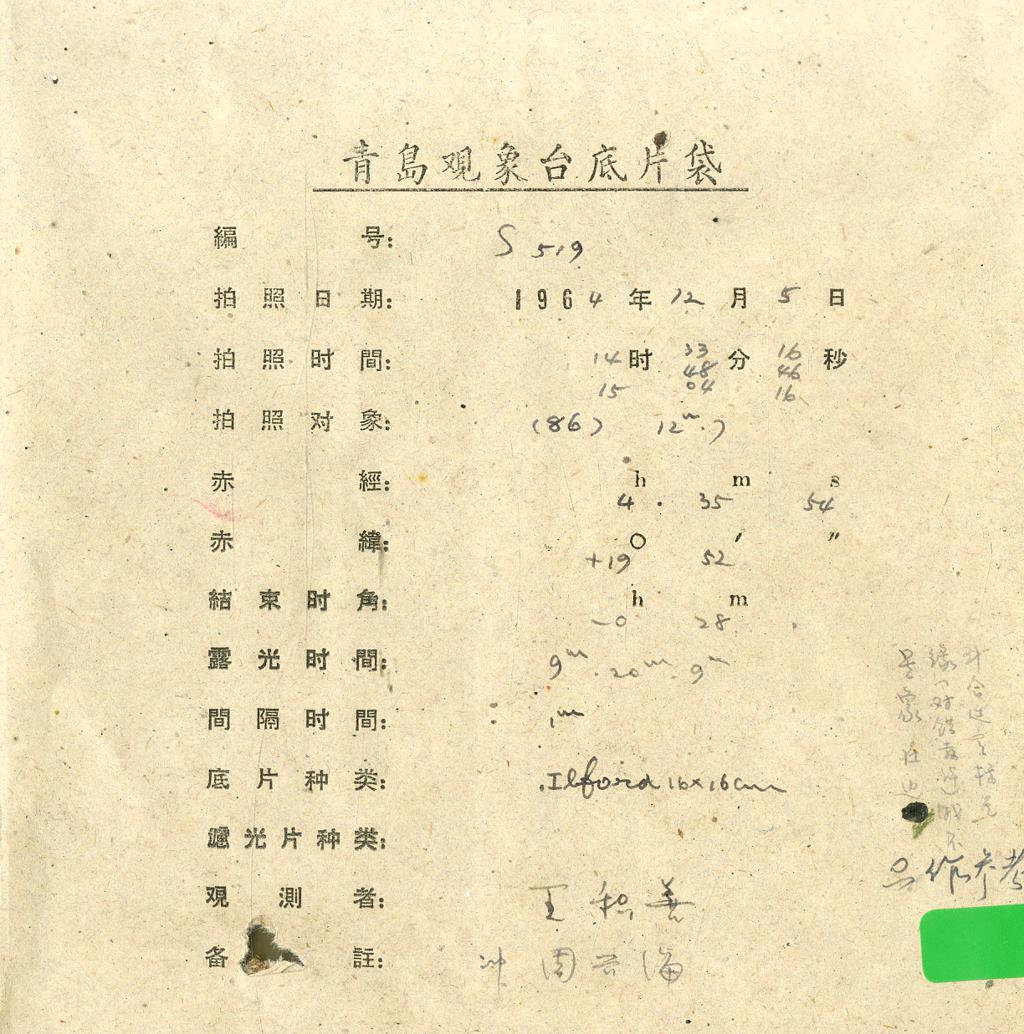 青島观象台底片袋
編号: S 519
拍照日期: 1964年12月5日
拍照时間: 14时33分16秒
48 46
15 04 16
拍照对象: (86) 12ᵐ.7
赤經: 4h 35m 54s
赤緯: +19° 52′ ″
結束时角: -0h 28m
露光时間: 9ᵐ. 20ᵐ. 9ᵐ
間隔时間: 1ᵐ
底片种类: Ilford 16×16cm
濾光片种类:
观測者: 王积善
备註: 冲
星象
只作参考